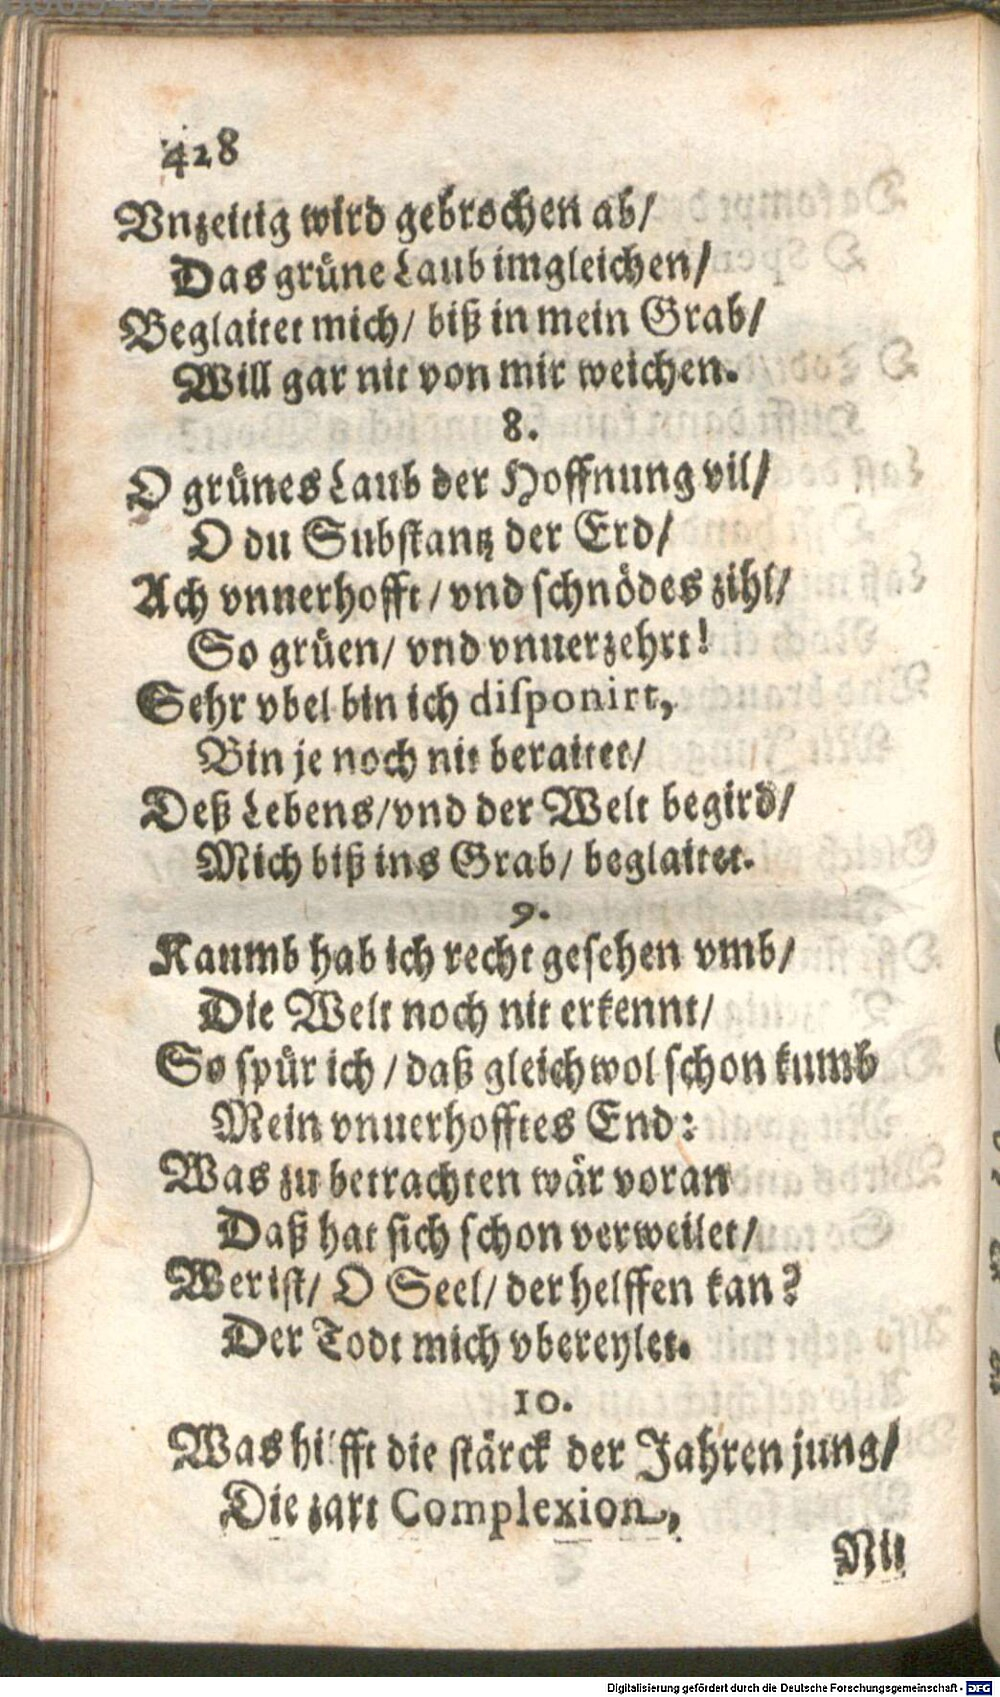 428
Vnzeitig wird gebrochen ab/
Das grüne Laub imgleichen/
Beglaitet mich/ biß in mein Grab/
Will gar nit von mir weichen.
8.
O grünes Laub der Hoffnung vil/
O du Substantz der Erd/
Ach vnuerhofft/ vnd schnödes zihl/
So grüen/ vnd vnuerzehrt!
Sehr vbel bin ich disponirt,
Bin je noch nit beraitet/
Deß Lebens/ vnd der Welt begird/
Mich biß ins Grab/ beglaitet.
9.
Kaumb hab ich recht gesehen vmb/
Die Welt noch nit erkennt/
So spür ich/ daß gleichwol schon kumb
Mein vnuerhofftes End:
Was zu betrachten wär voran
Daß hat sich schon verweilet/
Wer ist/ O Seel/ der helffen kan?
Der Todt mich vbereylet.
10.
Was hilfft die stärck der Jahren jung/
Die zart Complexion,
Nit
Digitalisierung gefördert durch die Deutsche Forschungsgemeinschaft - DFG